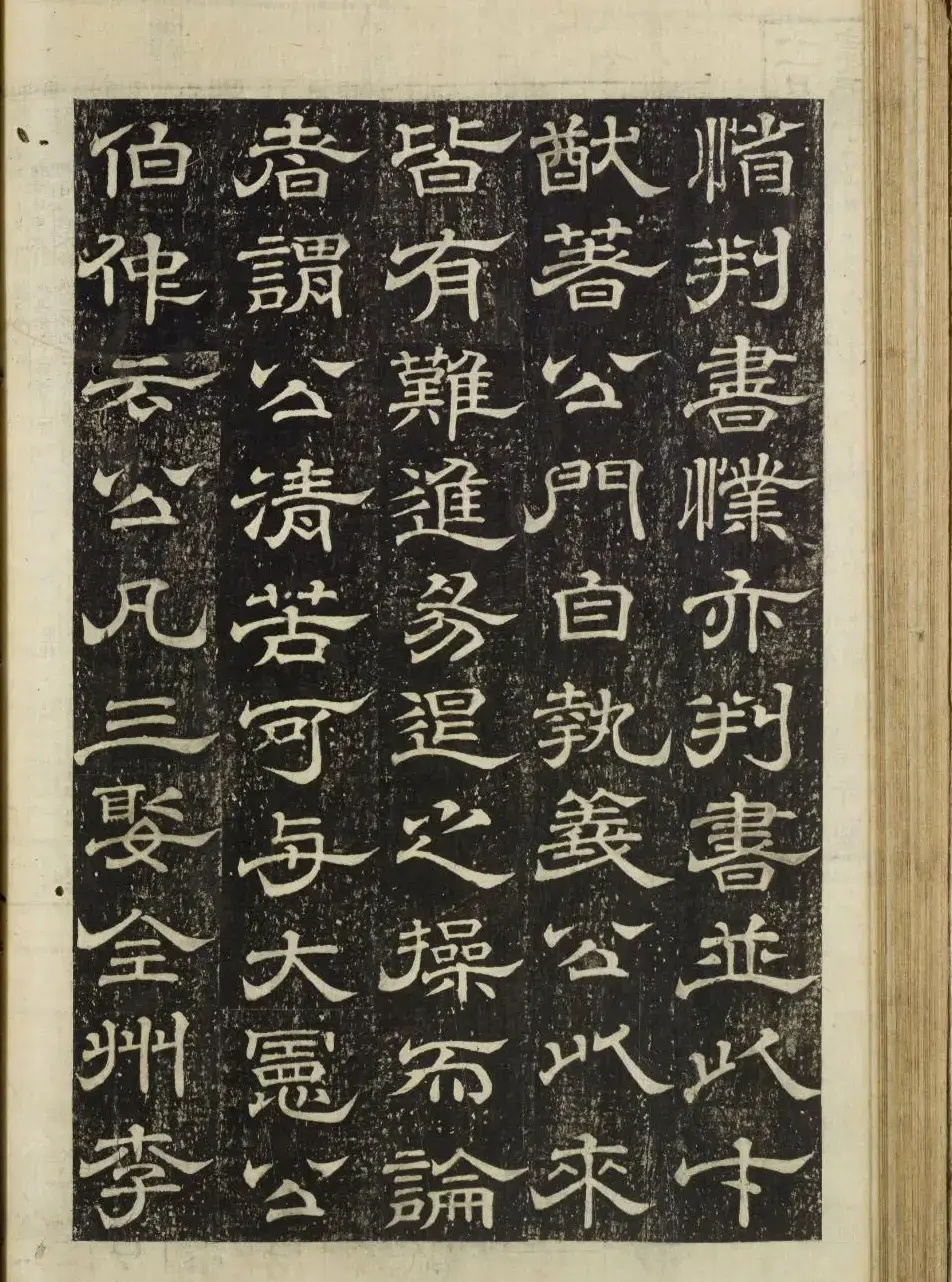 判書亦判書並以才
猷著公門自執義公以來
皆有難進易退之操而論
者謂公清苦可与大憲公
伯仲云公凡三娶全州李